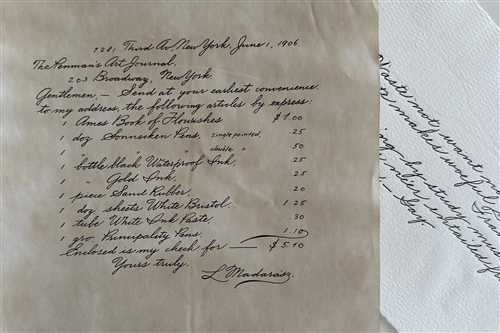 1281 Third Av. New York, June 1, 1906.
The Penman's Art Journal,
203 Broadway, New York.
Gentlemen, — Send at your earliest convenience
to my address, the following articles by express:
1 Ames Book of Flourishes $1.00
1 doz Sonnecken Pens, single pointed, .25
1 " " " double " 50
1 bottle black Waterproof Ink, .25
1 " Gold Ink. .25
1 piece Sand Rubber. 20
1 doz sheets White Bristol. 1 25
1 tube White Ink Paste. 30
1 gro Principality Pens. 1.10
Enclosed is my check for — $5.10
Yours truly.
L. Madarasz.
Waste not, want
makes woeful
by study
— Gay.